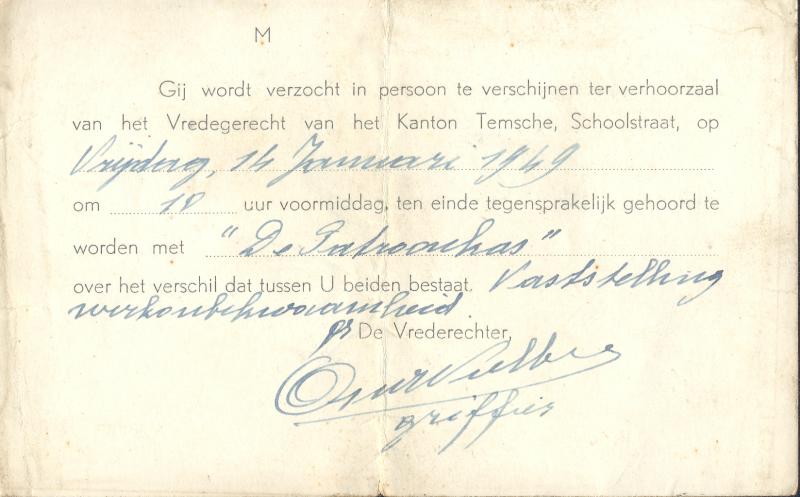 M
Gij wordt verzocht in persoon te verschijnen ter verhoorzaal
van het Vredegerecht van het Kanton Temsche, Schoolstraat, op
Vrijdag, 14 Januari 1949
om 10 uur voormiddag, ten einde tegensprakelijk gehoord te
worden met "De Patroonkas"
over het verschil dat tussen U beiden bestaat. Vaststelling
werkonbekwaamheid.
De Vrederechter,
griffier